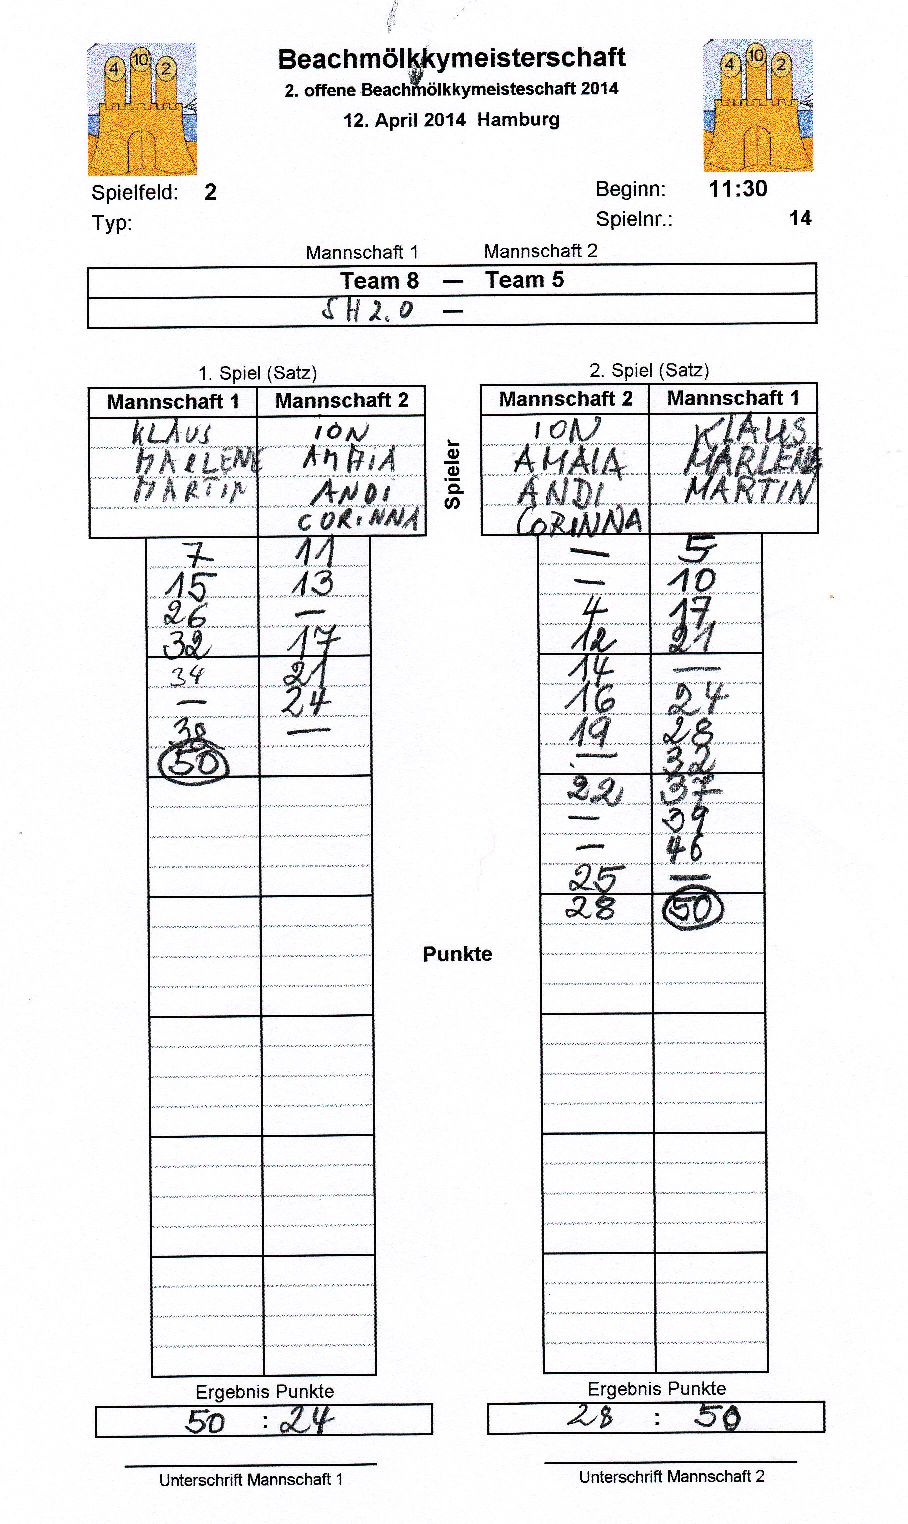 4 10 2
4 10 2
Beachmölkkymeisterschaft
2. offene Beachmölkkymeisteschaft 2014
12. April 2014 Hamburg
Spielfeld: 2
Beginn: 11:30
Typ:
Spielnr.: 14
Mannschaft 1 Mannschaft 2
Team 8 — Team 5
SH 2.0 —
1. Spiel (Satz)
Mannschaft 1 Mannschaft 2
KLAUS ION
MARLENE AMAIA
MARTIN ANDI
CORINNA
7 11
15 13
26 —
32 17
34 21
— 24
38 —
50
Ergebnis Punkte
50 : 24
Unterschrift Mannschaft 1
Spieler
Punkte
2. Spiel (Satz)
Mannschaft 2 Mannschaft 1
ION KLAUS
AMAIA MARLENE
ANDI MARTIN
CORINNA
— 5
— 10
4 17
12 21
14 —
16 24
19 28
— 32
22 37
— 39
— 46
25 —
28 50
Ergebnis Punkte
28 : 50
Unterschrift Mannschaft 2